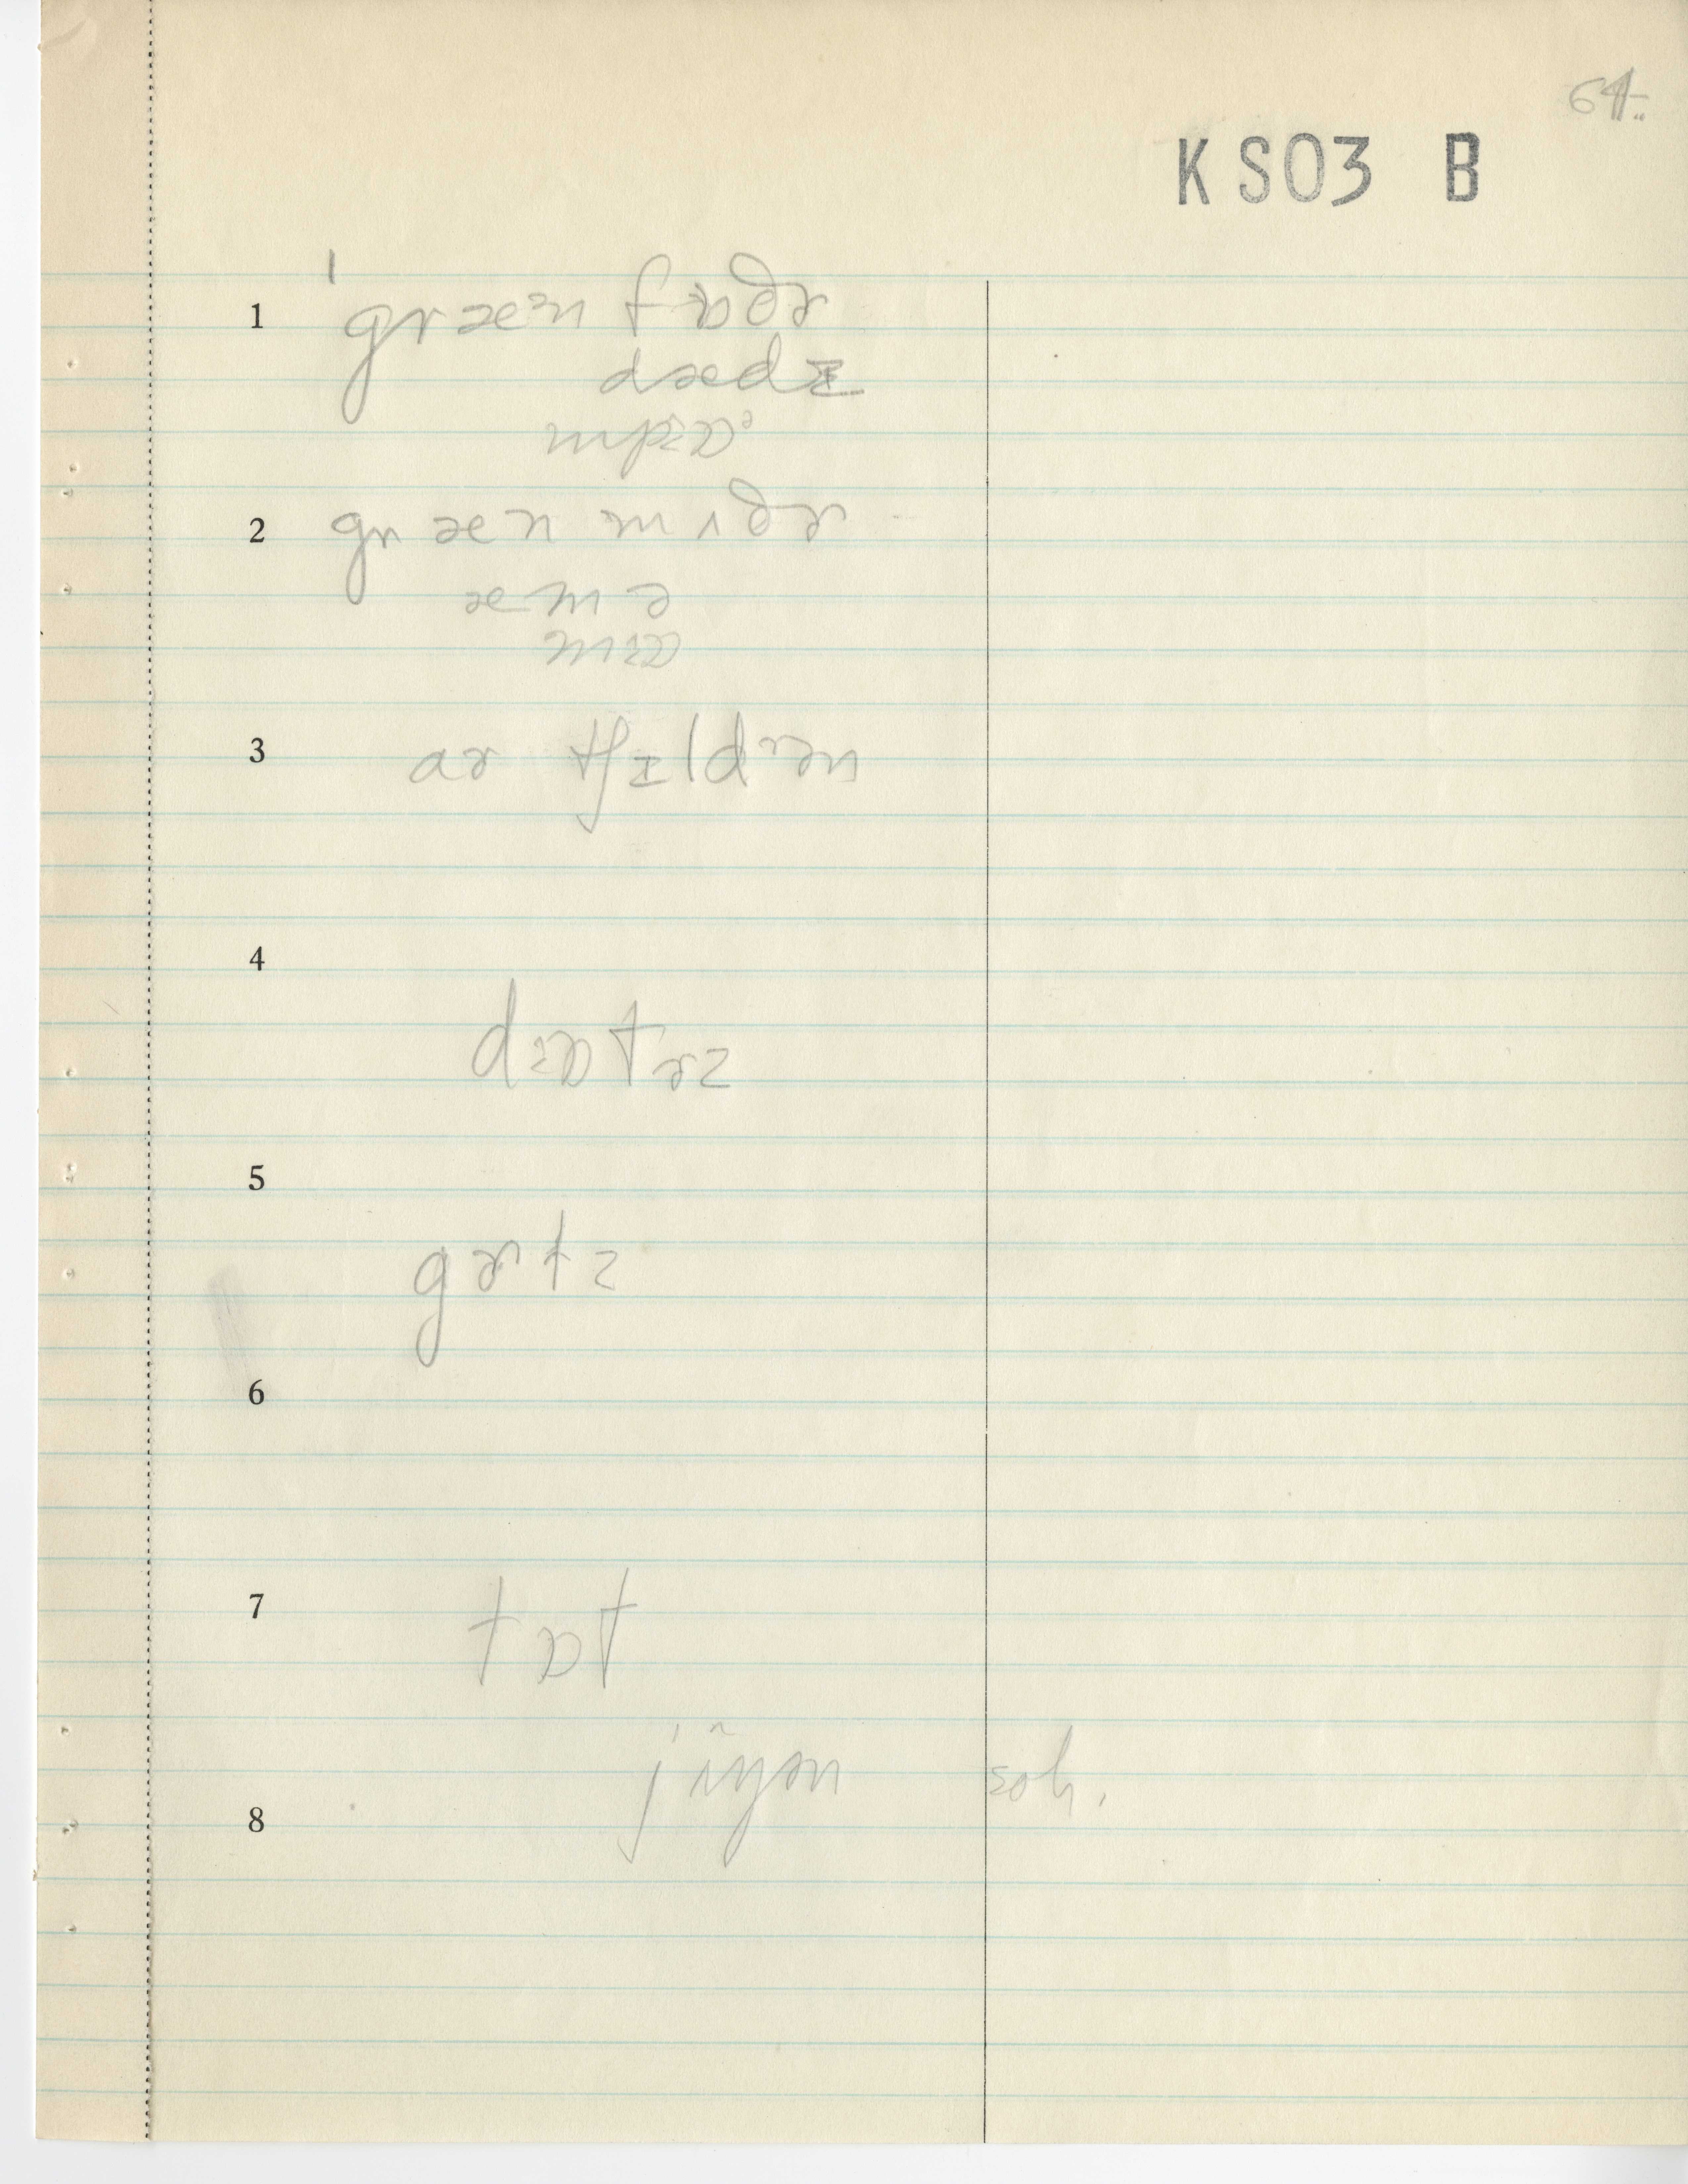 64.
KS03 B
1 ˈgræᵊn fɒðɚ
dædɪ
mpɜɒᵊ
2 græn mʌðɚ
æmə
mɜɒ
3 ar tʃɪldrən
4
dɜɒtɚz
5
gɚtz
6
7 tɒt
soh.
8